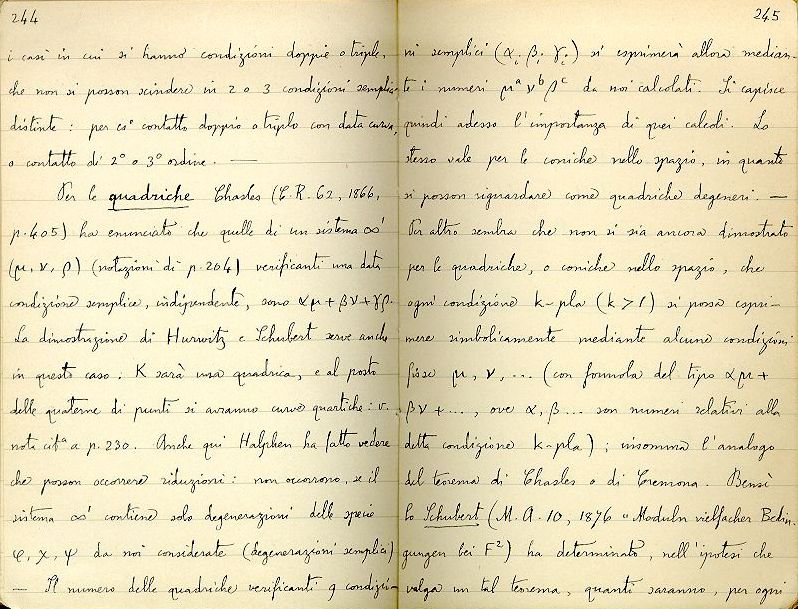 244
i casi in cui si hanno condizioni doppie o triple,
che non si posson scindere in 2 o 3 condizioni semplici
distinte: per es° contatto doppio o triplo con data curva,
o contatto di 2° o 3° ordine. —
Per le quadriche Chasles (C.R. 62, 1866,
p. 405) ha enunciato che quelle di un sistema ∞¹
(μ, ν, ρ) (notazioni di p. 204) verificanti una data
condizione semplice, indipendente, sono αμ + βν + γρ.
La dimostrazione di Hurwitz e Schubert serve anche
in questo caso: K sarà una quadrica, e al posto
delle quaterne di punti si avranno curve quartiche: v.
nota citª a p. 230. Anche qui Halphen ha fatto vedere
che posson occorrere riduzioni: non occorrono, se il
sistema ∞¹ contiene solo degenerazioni delle specie
φ, χ, ψ da noi considerate (degenerazioni semplici)
— Il numero delle quadriche verificanti 9 condizio-
245
ni semplici (αᵢ βᵢ γᵢ) si esprimerà allora median-
te i numeri μᵃ νᵇ ρᶜ da noi calcolati. Si capisce
quindi adesso l'importanza di quei calcoli. Lo
stesso vale per le coniche nello spazio, in quanto
si posson riguardare come quadriche degeneri. —
Per altro sembra che non si sia ancora dimostrato
per le quadriche, o coniche nello spazio, che
ogni condizione k-pla (k > 1) si possa espri-
mere simbolicamente mediante alcune condizioni
fisse μ, ν, ... (con formola del tipo αμ +
βν + ..., ove α, β... son numeri relativi alla
detta condizione k-pla); insomma l'analogo
del teorema di Chasles o di Cremona. Bensì
lo Schubert (M.A. 10, 1876 "Moduln vielfacher Bedin-
gungen bei F²) ha determinato, nell'ipotesi che
valga un tal teorema, quanti saranno, per ogni